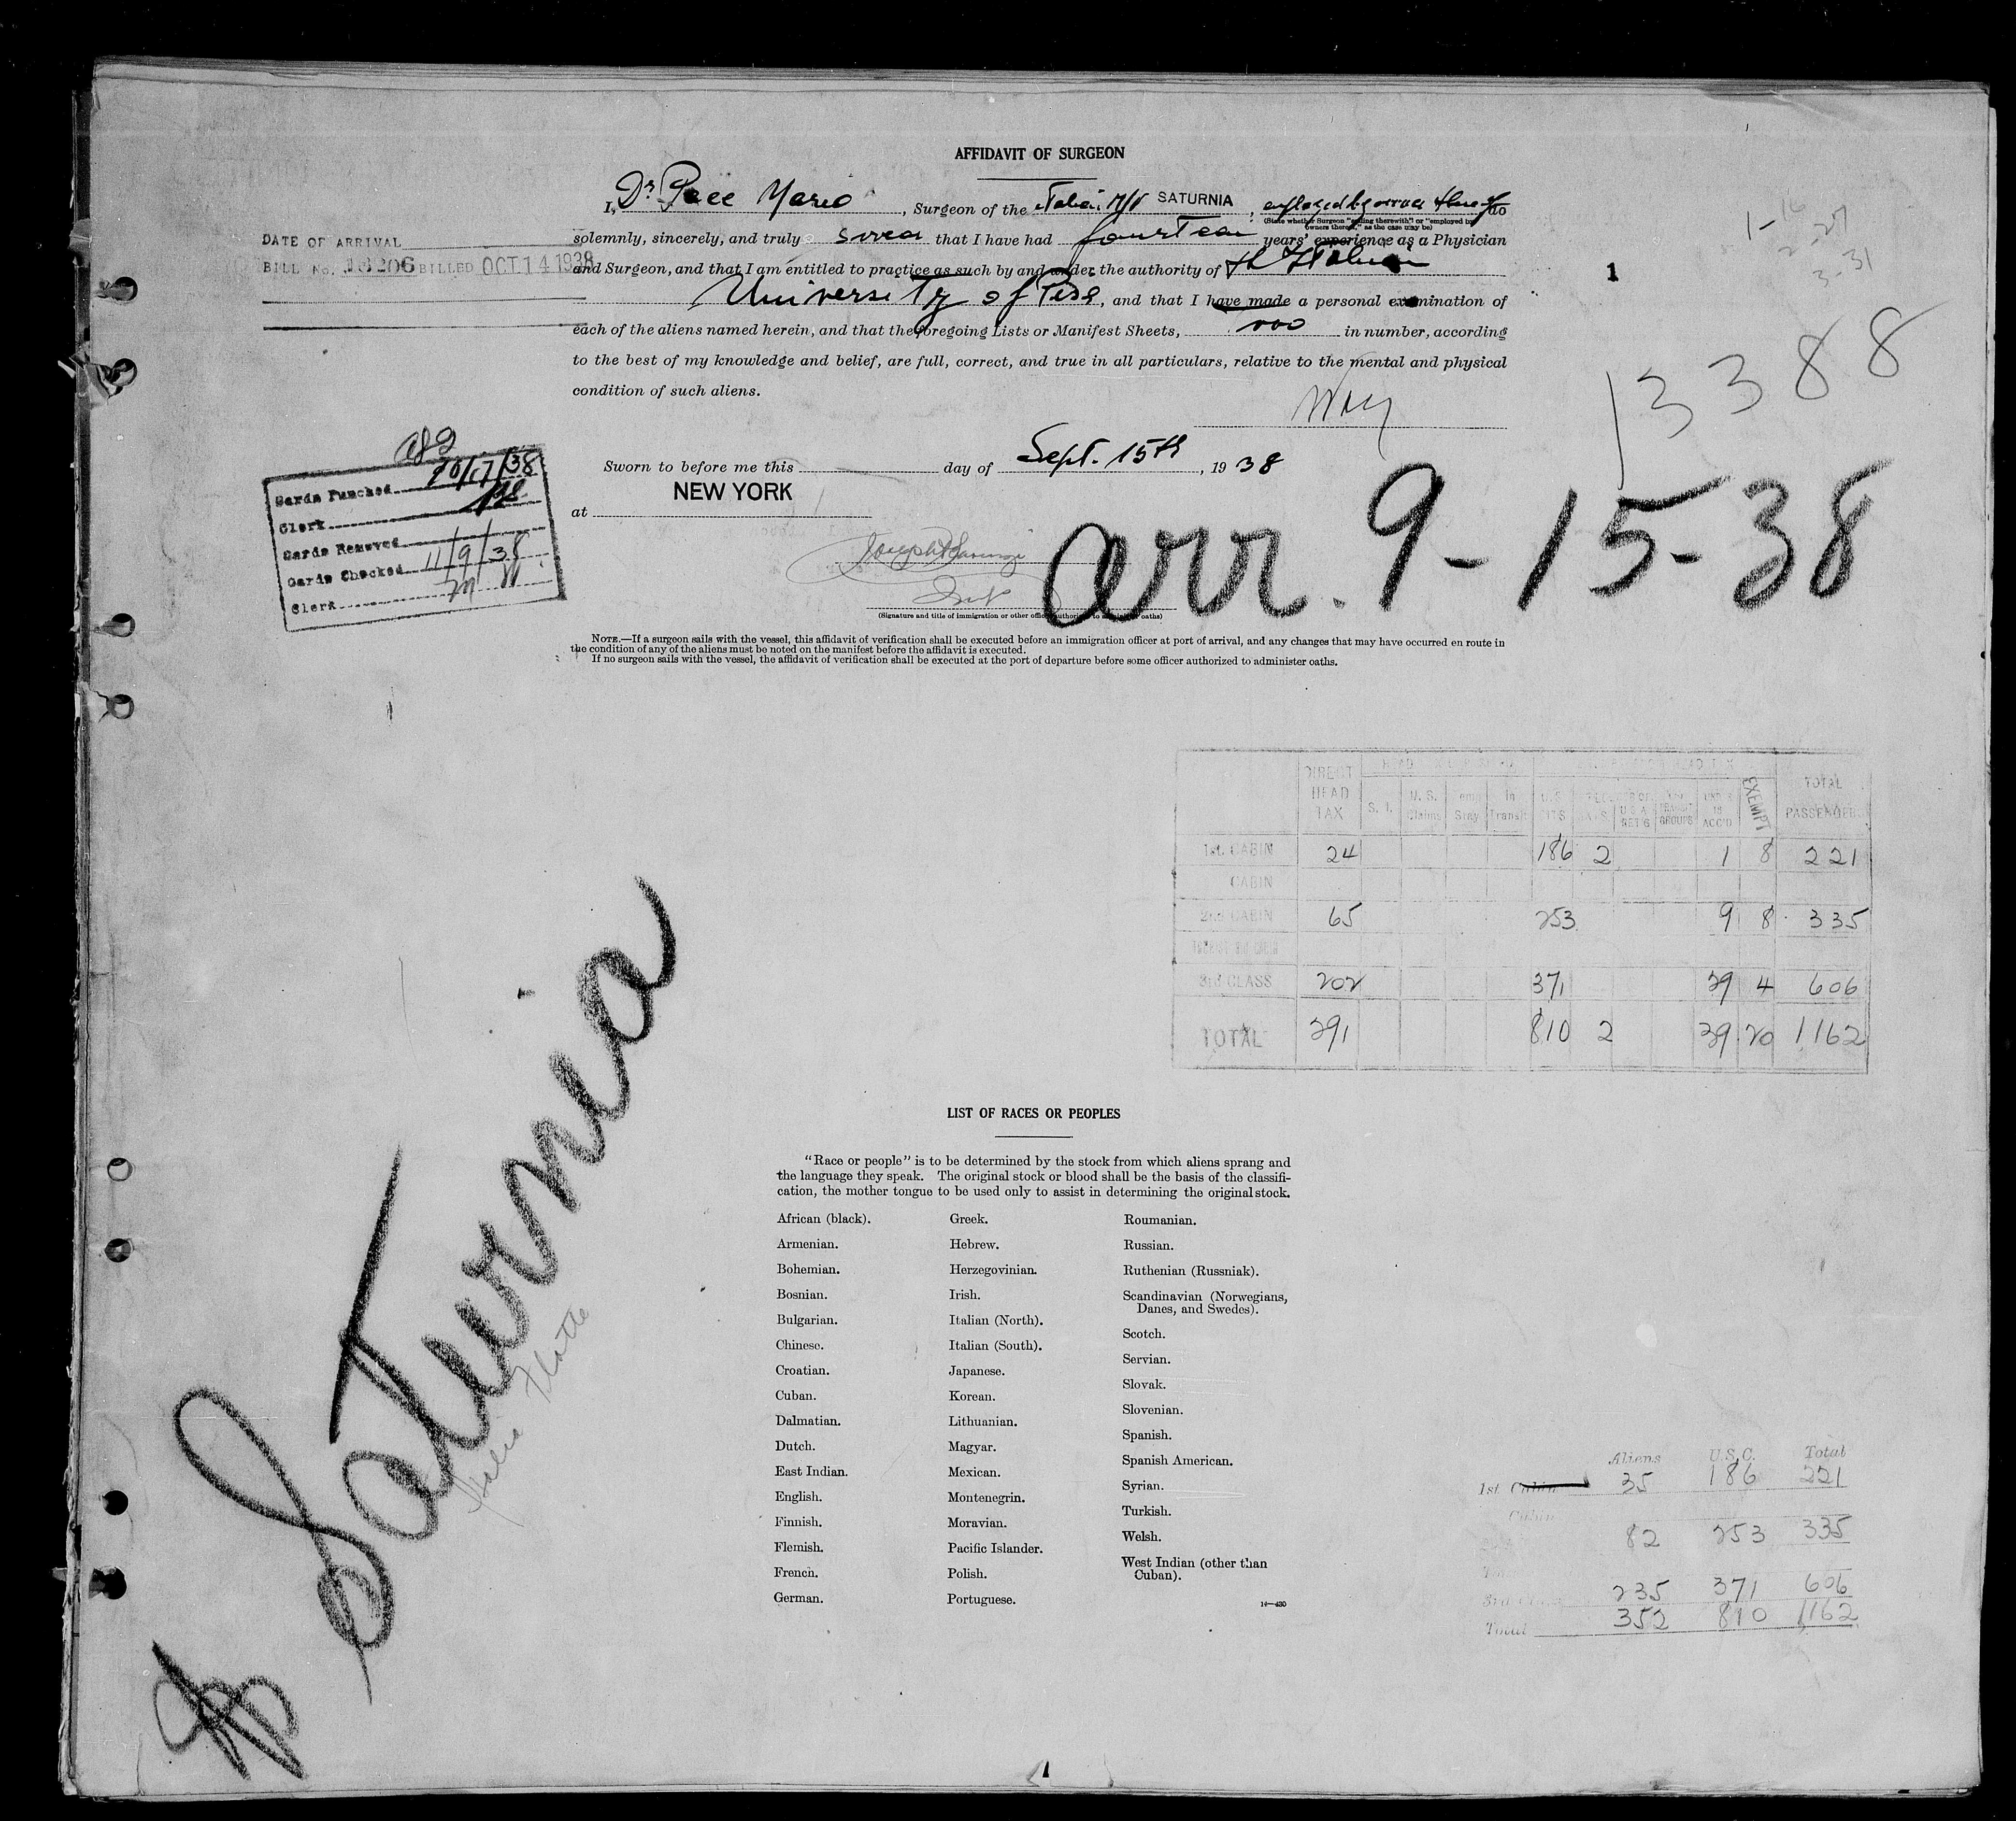 AFFIDAVIT OF SURGEON
I, Dr Pace Mario, Surgeon of the Italian M/V SATURNIA, employed by owners thereof do
(State whether Surgeon "sailing therewith" or "employed by owners thereof," as the case may be)
solemnly, sincerely, and truly swear that I have had fourteen years' experience as a Physician
and Surgeon, and that I am entitled to practice as such by and under the authority of the Italian
University of Pisa, and that I have made a personal examination of
each of the aliens named herein, and that the foregoing Lists or Manifest Sheets, in number, according
to the best of my knowledge and belief, are full, correct, and true in all particulars, relative to the mental and physical
condition of such aliens.
Sworn to before me this day of Sept. 15th, 1938
at NEW YORK
(Signature and title of immigration or other officer authorized to administer oaths)
NOTE.—If a surgeon sails with the vessel, this affidavit of verification shall be executed before an immigration officer at port of arrival, and any changes that may have occurred en route in
the condition of any of the aliens must be noted on the manifest before the affidavit is executed.
If no surgeon sails with the vessel, the affidavit of verification shall be executed at the port of departure before some officer authorized to administer oaths.
DATE OF ARRIVAL
BILL No. 16206 BILLED OCT 14 1938
Cards Punched 10/17/38
Clerk
Cards Removed
Cards Checked 11/9/38
Clerk
1
1-16
2-27
3-31
13388
arr. 9-15-38
DIRECT HEAD TAX S. I. U.S. Claims Temp Stay In Transit EXEMPT TOTAL PASSENGERS
1st. CABIN 24 186 2 1 8 221
CABIN
2nd CABIN 65 253 9 8 335
3rd CLASS 202 371 29 4 606
TOTAL 291 810 2 39 20 1162
Saturnia
LIST OF RACES OR PEOPLES
"Race or people" is to be determined by the stock from which aliens sprang and
the language they speak. The original stock or blood shall be the basis of the classifi-
cation, the mother tongue to be used only to assist in determining the original stock.
African (black).
Armenian.
Bohemian.
Bosnian.
Bulgarian.
Chinese.
Croatian.
Cuban.
Dalmatian.
Dutch.
East Indian.
English.
Finnish.
Flemish.
French.
German.
Greek.
Hebrew.
Herzegovinian.
Irish.
Italian (North).
Italian (South).
Japanese.
Korean.
Lithuanian.
Magyar.
Mexican.
Montenegrin.
Moravian.
Pacific Islander.
Polish.
Portuguese.
Roumanian.
Russian.
Ruthenian (Russniak).
Scandinavian (Norwegians,
Danes, and Swedes).
Scotch.
Servian.
Slovak.
Slovenian.
Spanish.
Spanish American.
Syrian.
Turkish.
Welsh.
West Indian (other than
Cuban).
14—430
Aliens U.S.C. Total
1st Cabin 35 186 221
Cabin
82 253 335
3rd Class 235 371 606
Total 352 810 1162
1